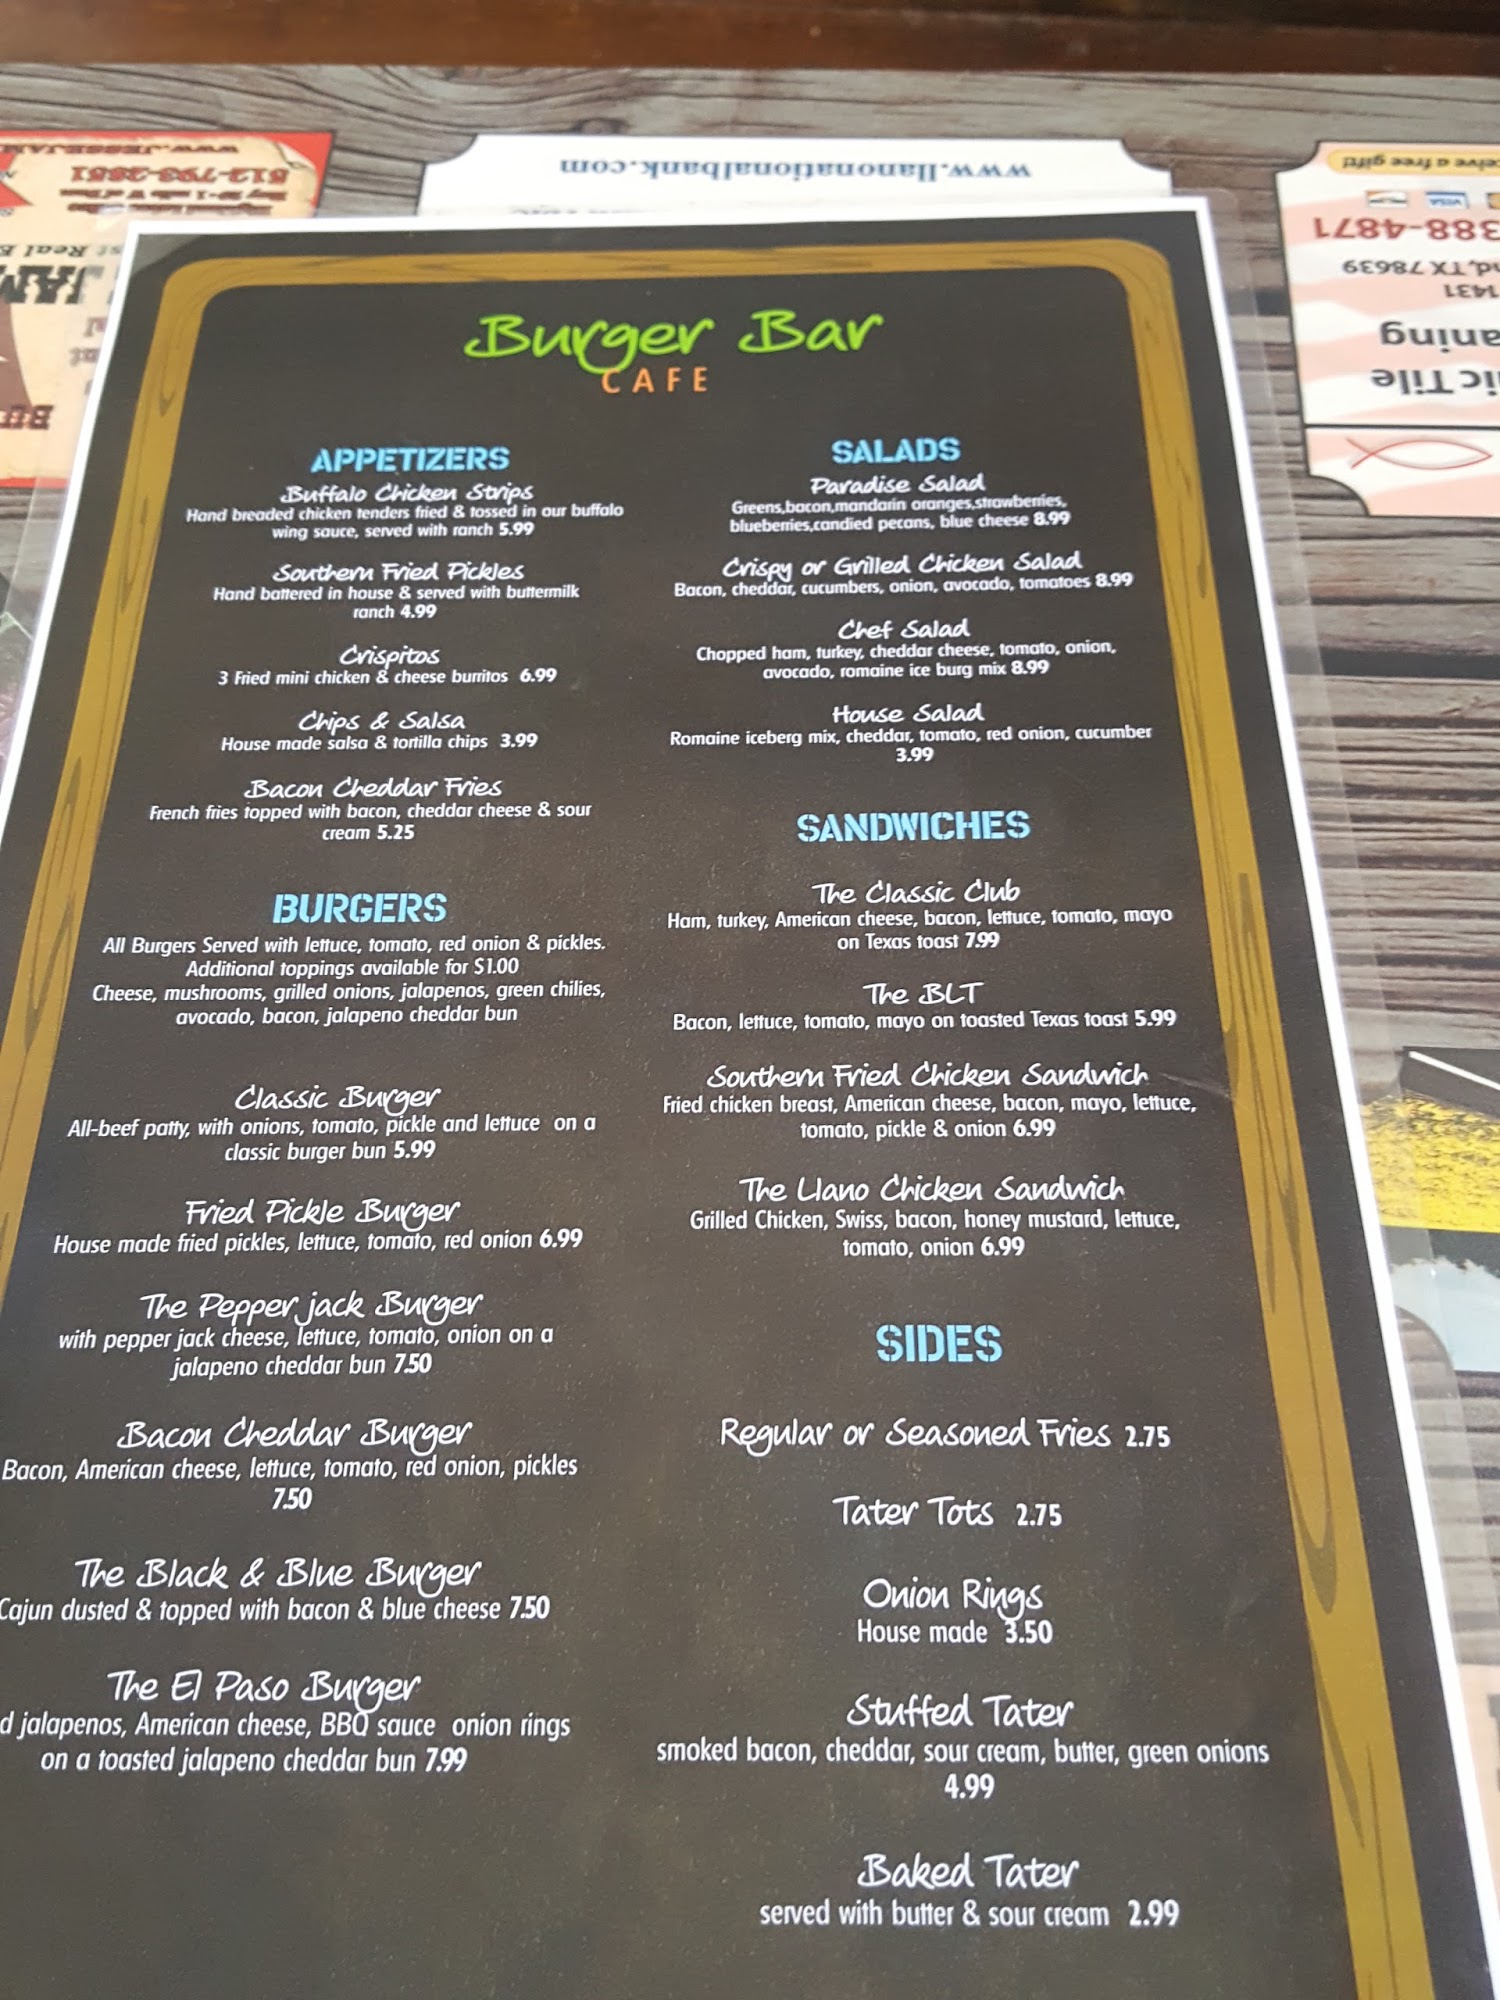 www.llanonationalbank.com
512-793-2851
eive a free gift!
VISA
388-4871
nd, TX 78639
1431
aning
ic Tile
Burger Bar
CAFE
APPETIZERS
Buffalo Chicken Strips
Hand breaded chicken tenders fried & tossed in our buffalo
wing sauce, served with ranch 5.99
Southern Fried Pickles
Hand battered in house & served with buttermilk
ranch 4.99
Crispitos
3 Fried mini chicken & cheese burritos 6.99
Chips & Salsa
House made salsa & tortilla chips 3.99
Bacon Cheddar Fries
French fries topped with bacon, cheddar cheese & sour
cream 5.25
BURGERS
All Burgers Served with lettuce, tomato, red onion & pickles.
Additional toppings available for $1.00
Cheese, mushrooms, grilled onions, jalapenos, green chilies,
avocado, bacon, jalapeno cheddar bun
Classic Burger
All-beef patty, with onions, tomato, pickle and lettuce on a
classic burger bun 5.99
Fried Pickle Burger
House made fried pickles, lettuce, tomato, red onion 6.99
The Pepper jack Burger
with pepper jack cheese, lettuce, tomato, onion on a
jalapeno cheddar bun 7.50
Bacon Cheddar Burger
Bacon, American cheese, lettuce, tomato, red onion, pickles
7.50
The Black & Blue Burger
Cajun dusted & topped with bacon & blue cheese 7.50
The El Paso Burger
d jalapenos, American cheese, BBQ sauce onion rings
on a toasted jalapeno cheddar bun 7.99
SALADS
Paradise Salad
Greens,bacon,mandarin oranges,strawberries,
blueberries,candied pecans, blue cheese 8.99
Crispy or Grilled Chicken Salad
Bacon, cheddar, cucumbers, onion, avocado, tomatoes 8.99
Chef Salad
Chopped ham, turkey, cheddar cheese, tomato, onion,
avocado, romaine ice burg mix 8.99
House Salad
Romaine iceberg mix, cheddar, tomato, red onion, cucumber
3.99
SANDWICHES
The Classic Club
Ham, turkey, American cheese, bacon, lettuce, tomato, mayo
on Texas toast 7.99
The BLT
Bacon, lettuce, tomato, mayo on toasted Texas toast 5.99
Southern Fried Chicken Sandwich
Fried chicken breast, American cheese, bacon, mayo, lettuce,
tomato, pickle & onion 6.99
The Llano Chicken Sandwich
Grilled Chicken, Swiss, bacon, honey mustard, lettuce,
tomato, onion 6.99
SIDES
Regular or Seasoned Fries 2.75
Tater Tots 2.75
Onion Rings
House made 3.50
Stuffed Tater
smoked bacon, cheddar, sour cream, butter, green onions
4.99
Baked Tater
served with butter & sour cream 2.99